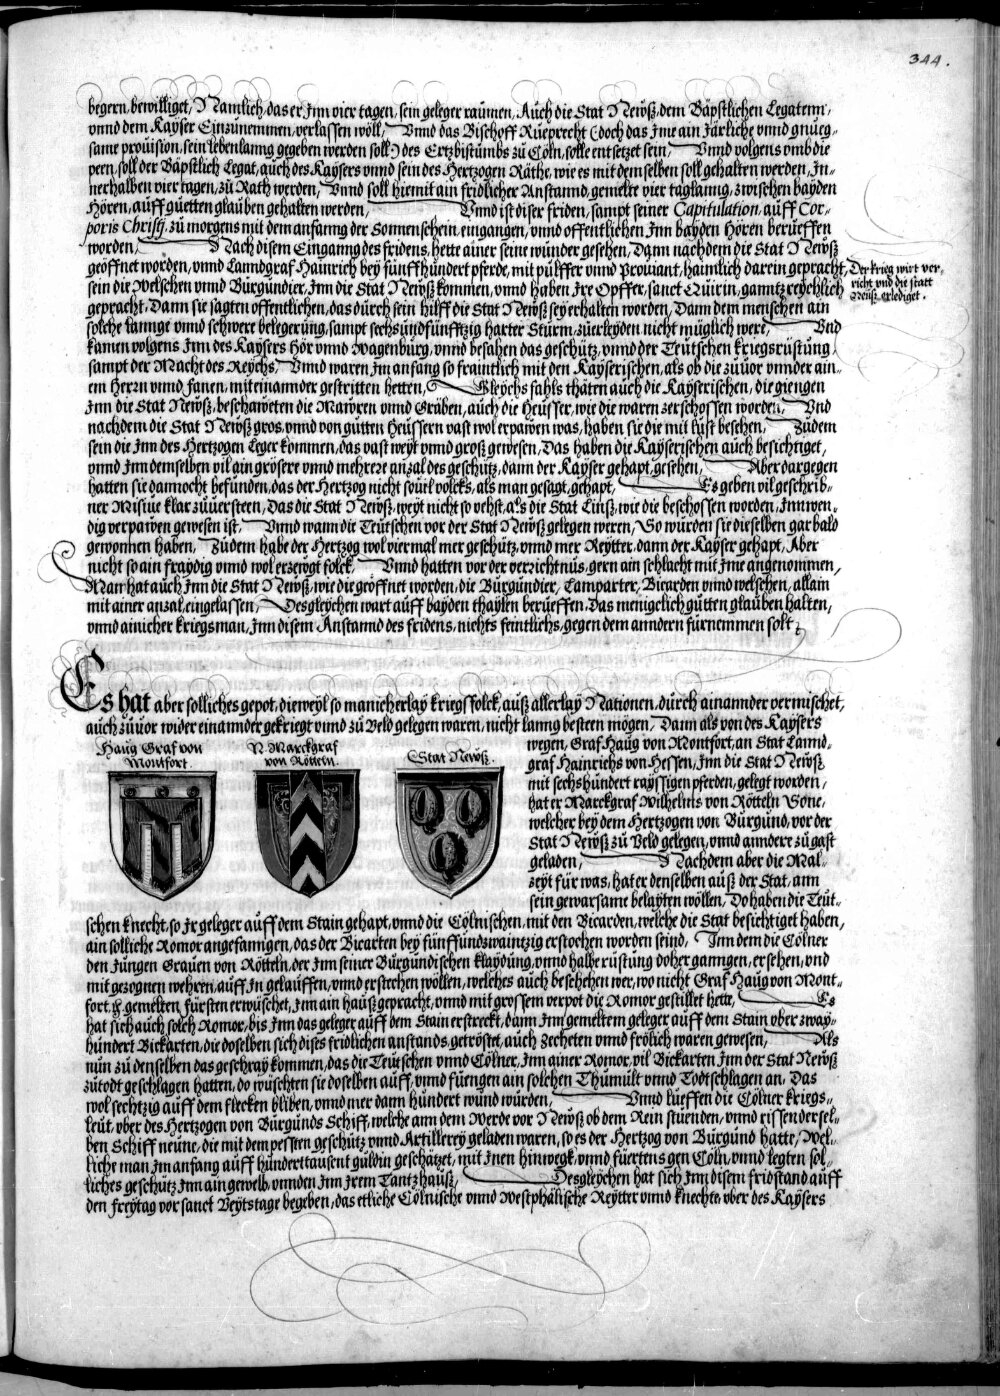 344.
begern, bewilliget, Namlich, das er Inn vier tagen, sein geleger raümen, Aüch die Stat Newß, dem Bäpstlichen Legatenn,
vnnd dem Kaÿser Einzünemmen, verlassen wöll, Vnnd das Bischoff Rüeprecht (doch das Ime ain Järliche vnnd gnüeg-
same prouision, sein lebenlanng gegeben werden soll) des Ertzbistümbs zü Cöln, solle entsetzet sein, Vnnd volgens vmb die
peen, soll der Bäpstlich Legat, aüch des Kaÿsers vnnd sein des Hertzogen Räthe, wie es mit demselben soll gehalten werden, In-
nerhalben vier tagen, zü Rath werden, Vnnd soll hiemit ain fridlicher Anstannd, gemelte vier taglanng, zwischen baÿden
Hören, aüff güetten glaüben gehalten werden, Vnnd ist diser friden, sampt seiner Capitulation, aüff Cor-
poris Christj, zü morgens mit dem anfanng der Sonnenschein, eingangen, vnnd offentlichen Inn baÿden Hören berüeffen
worden, Nach disem Einganng des fridens, hette ainer seine wünder gesehen, Dann nachdem die Stat Newß
geöffnet worden, vnnd Lanndgraf Hainrich beÿ fünffhündert pferde, mit pülffer vnnd Prouiant, haimlich darein gepracht,
Der krieg wirt ver-
richt vnd die statt
Neüß erlediget.
sein die Welschen vnnd Bürgündier, Inn die Stat Newß kommen, vnnd haben Ire Opffer, sanct Qüirin, ganntz reÿchlich
gepracht, Dann sie sagten offentlichen, das dürch sein hilff die Stat Newß seÿ erhalten worden, Dann dem menschen ain
solche lannge vnnd schwere belegerüng, sampt sechsündfünfftzig harter Stürm, züerleÿden nicht müglich were, Vnd
kamen volgens Inn des Kaÿsers Hör vnnd Wagenbürg, vnnd besahen das geschütz, vnnd der Teütschen kriegsrüstüng,
sampt der Macht des Reÿchs, Vnnd waren Im anfang so fraintlich mit den Kaÿserischen, als ob die züüor vnnder ain-
em Herrn vnnd fanen, miteinannder gestritten hetten, Gleÿchsfahls thäten aüch die Kaÿserischen, die giengen
Inn die Stat Newß, beschaweten die Mawren vnnd Gräben, aüch die Heüsser, wie die waren zerschossen worden, Vnd
nachdem die Stat Newß gros, vnnd von gütten Heüssern vast wol erpawen was, haben sie die mit lüst besehen, Züdem
sein die Inn des Hertzogen Leger kommen, das vast weÿt vnnd groß gewesen, Das haben die Kaÿserischen aüch besichtiget,
vnnd Inn demselben vil ain grösere vnnd mehrere anzal des geschütz, dann der Kaÿser gehapt, gesehen, Aber dargegen
hatten sie dannocht befünden, das der Hertzog nicht souil volcks, als man gesagt, gehapt, Es geben vil geschrib-
ner Misiue klar züüersteen, Das die Stat Newß, weÿt nicht so vehst, als die Stat Linß, wie die beschossen worden, Innwen-
dig verpawen gewesen ist, Vnnd wann die Teütschen vor der Stat Newß gelegen weren, So würden sie dieselben gar bald
gewonnen haben, Züdem habe der Hertzog wol viermal mer geschütz, vnnd mer Reÿtter, dann der Kaÿser gehapt, Aber
nicht so ain fraÿdig vnnd wol erzewgt folck, Vnnd hatten vor der verrichtnüs, gern ain schlacht mit Ime angenommen,
Man hat aüch Inn die Stat Newß, wie die geöffnet worden, die Bürgündier, Lamparter, Bicarden vnnd Welschen, allain
mit ainer anzal, eingelassen, Desgleÿchen wart aüff baÿden thaÿlen berüeffen, Das menigclich gütten glaüben halten,
vnnd ainicher kriegsman, Inn disem Anstannd des fridens, nichts feintlichs, gegen dem anndern fürnemmen solt,
Es hat aber solliches gepot, dieweÿl so manicherlaÿ kriegsfolck, aüß allerlaÿ Nationen, dürch ainannder vermischet,
aüch züüor wider einannder gekriegt vnnd zü Veld gelegen waren, nicht lanng besteen mögen, Dann als von des Kaÿsers
Haüg Graf von
Montfort.
N. Marckgraf
von Rötteln.
Stat Newß.
wegen, Graf Haüg von Montfort, an Stat Lannd-
graf Hainrichs von Hessen, Inn die Stat Newß
mit sechshündert raÿssigen pferden, gelegt worden,
hat er Marckgraf Wilhelms von Rötteln Sone,
welcher beÿ dem Hertzogen von Bürgünd, vor der
Stat Newß zü Veld gelegen, vnnd anndere zü gast
geladen, Nachdem aber die Mal-
zeÿt für was, hat er denselben aüß der Stat, ann
sein gewarsame belaÿten wöllen, Do haben die Teüt-
schen knecht, so Ir geleger aüff dem Stain gehapt, vnnd die Cölnischen, mit den Bicarden, welche die Stat besichtiget haben,
ain solliche Romor angefanngen, das der Bicarten beÿ fünffündzwaintzig erstochen worden seind, Inn dem die Cölner
den Jüngen Grauen von Rötteln, der Inn seiner Bürgündischen klaÿdüng, vnnd halbe rüstüng doher ganngen, ersehen, vnd
mit gezognen wehren, aüff In gelaüffen, vnnd erstechen wöllen, welches aüch beschehen wer, wo nicht Graf Haüg von Mont-
fort, gemelten fürsten erwüschet, Inn ain haüß gepracht, vnnd mit grossem verpot die Romor gestillet hette, Es
hat sich aüch solch Romor, bis Inn das geleger aüff dem Stain erstreckt, dann Inn gemeltem geleger aüff dem Stain ober zwaÿ-
hündert Bickarten, die doselben sich dises fridlichen anstands, getröstet, aüch Zecheten vnnd frölich waren gewesen, Als
nün zü denselben das geschraÿ kommen, das die Teütschen vnnd Cölner, Inn ainer Romor, vil Bickarten Inn der Stat Newß
zütodt geschlagen hatten, do wüschten sie doselben aüff, vnnd füengen ain solchen Thümült vnnd Todtschlagen an, Das
wol sechtzig aüff dem flecken bliben, vnnd mer dann hündert wünd würden, Vnnd lüeffen die Cölner kriegs-
leüt, vber des Hertzogen von Bürgünds Schiff, welche ann dem Werde vor Newß ob dem Rein stüenden, vnnd rissen dersel-
ben Schiff neüne, die mit dem pessten geschütz vnnd Artillereÿ geladen waren, so es der Hertzog von Bürgünd hatte, Wel-
liche man Im anfang aüff hünderttaüsent güldin geschätzet, mit Inen hinwegk, vnnd füertens gen Cöln, vnnd legten sol-
liches geschütz Inn ain gewelb, vnnden Inn Irem Tantzhaüß, Desgleÿchen hat sich Inn disem fridstand aüff
den freÿtag vor sanct Veÿtstage begeben, das etliche Cölnische vnnd Westphälische Reÿtter vnnd knechte, vber des Kaÿsers